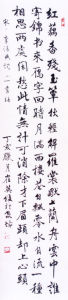 紅藕香殘玉簟秋輕解羅裳獨上蘭舟雲中誰
寄錦書來雁字回時月滿西樓花自飄零水自流一種
相思兩處閒愁此情無計可消除才下眉頭卻上心頭
宋李清照詞一剪梅
丁亥